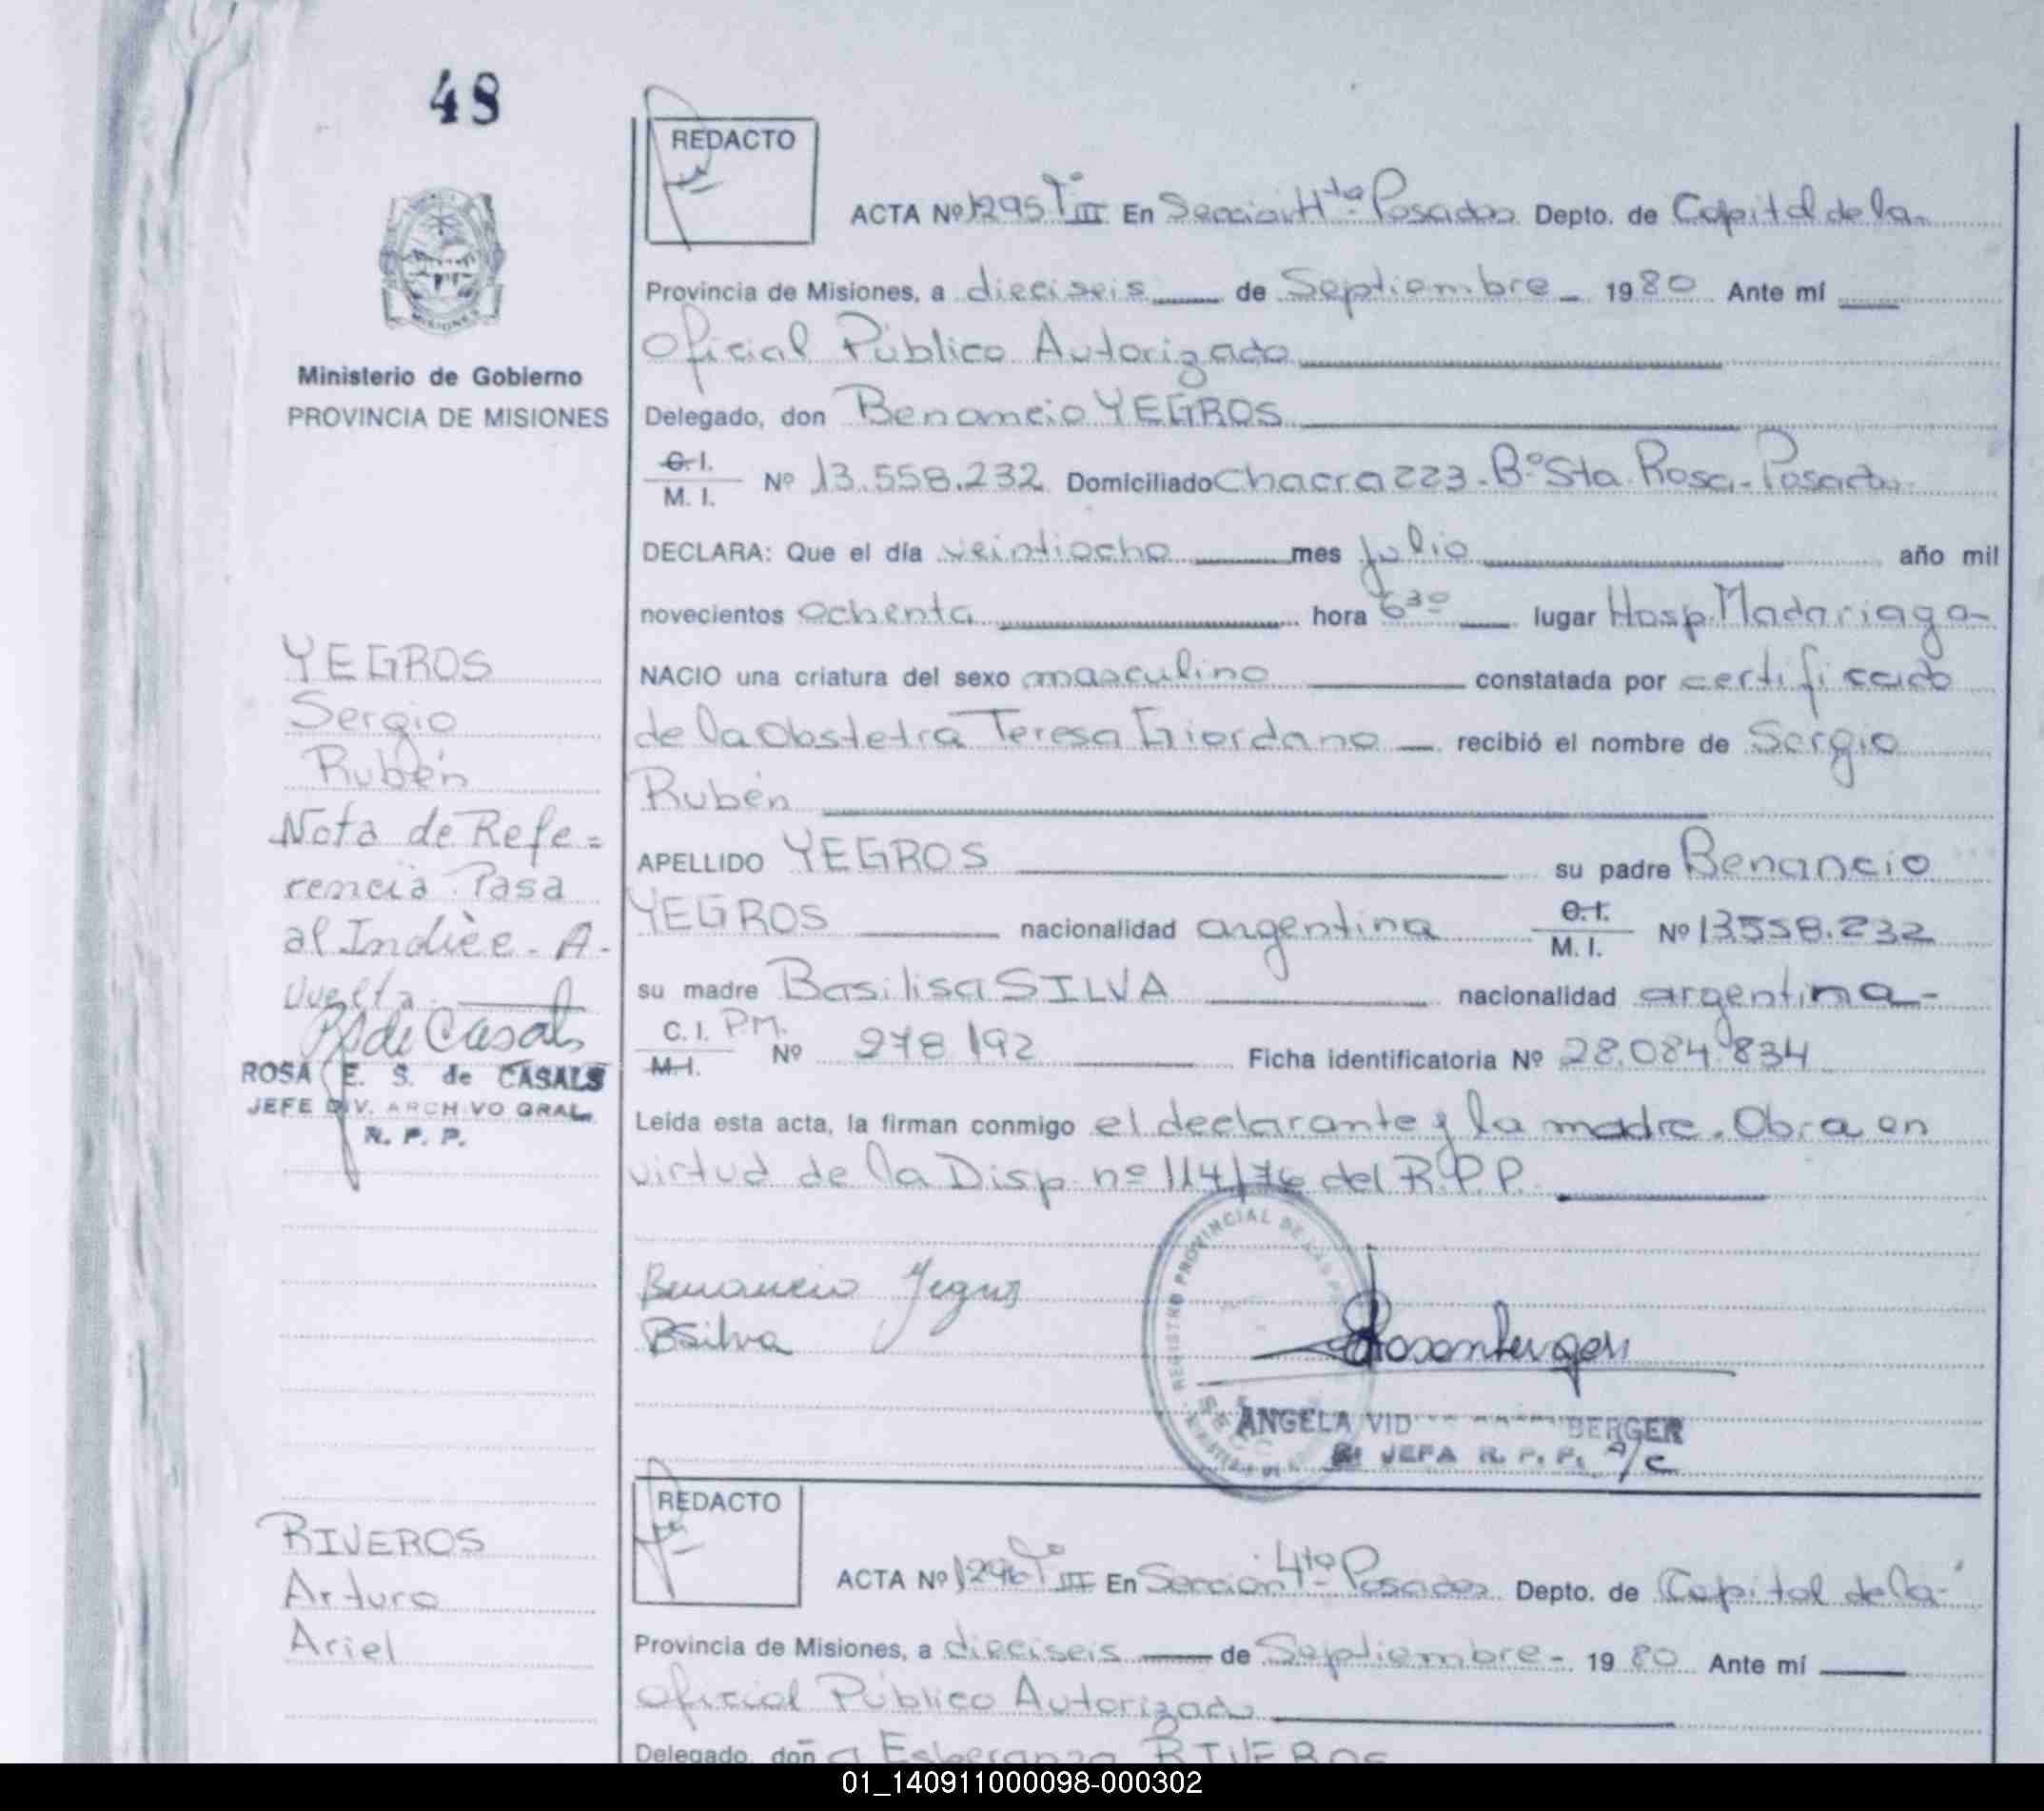 48
REDACTO
ACTA Nº 1295 Tº III En Sección 4ta Posadas Depto. de Capital de la
Provincia de Misiones, a dieciseis de Septiembre 1980 Ante mí
Oficial Público Autorizado
Ministerio de Gobierno
PROVINCIA DE MISIONES
Delegado, don Benancio YEGROS
C.I.
M. I. Nº 13.558.232 Domiciliado Chacra 223. Bº Sta. Rosa - Posadas
DECLARA: Que el día veintiocho mes julio año mil
novecientos ochenta hora 6 30 lugar Hosp. Madariaga-
YEGROS
Sergio
Rubén
Nota de Refe=
rencia Pasa
al Indice - A-
Vuelta.
ROSA E. S. de CASALS
JEFE DIV. ARCHIVO GRAL.
R. P. P.
NACIO una criatura del sexo masculino constatada por certificado
de la Obstetra Teresa Giordano recibió el nombre de Sergio
Rubén
APELLIDO YEGROS su padre Benancio
YEGROS nacionalidad argentina C.I. M. I. Nº 13.558.232
su madre Basilisa SILVA nacionalidad argentina-
C. I. PM.
M.I. Nº 278.192 Ficha identificatoria Nº 28.084.834
Leída esta acta, la firman conmigo el declarante y la madre. Obra en
virtud de la Disp. nº 114/76 del R.P.P.
REGISTRO PROVINCIAL DE LAS
Benancio Yegros
BSilva
ANGELA VID BERGER
JEFA R. P. P. a/c
REDACTO
RIVEROS
Arturo
Ariel
ACTA Nº 1296 Tº III En Sección 4ta Posadas Depto. de Capital de la-
Provincia de Misiones, a dieciseis de Septiembre- 1980 Ante mí
Oficial Público Autorizado
Delegado, doña Esperanza RIVEROS
01_140911000098-000302